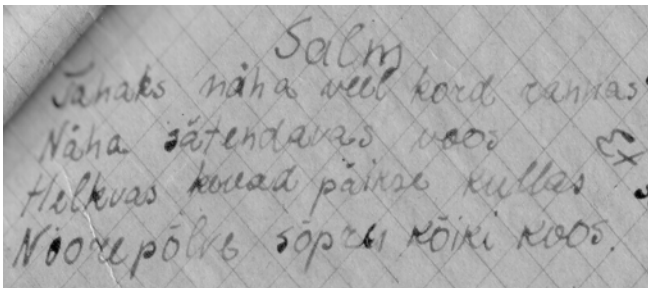 Salm
Tahaks näha veel kord rannas
Näha sätendavas voos
Helkvas kevad päikse kullas
Noorepõlve sõpru kõiki koos.